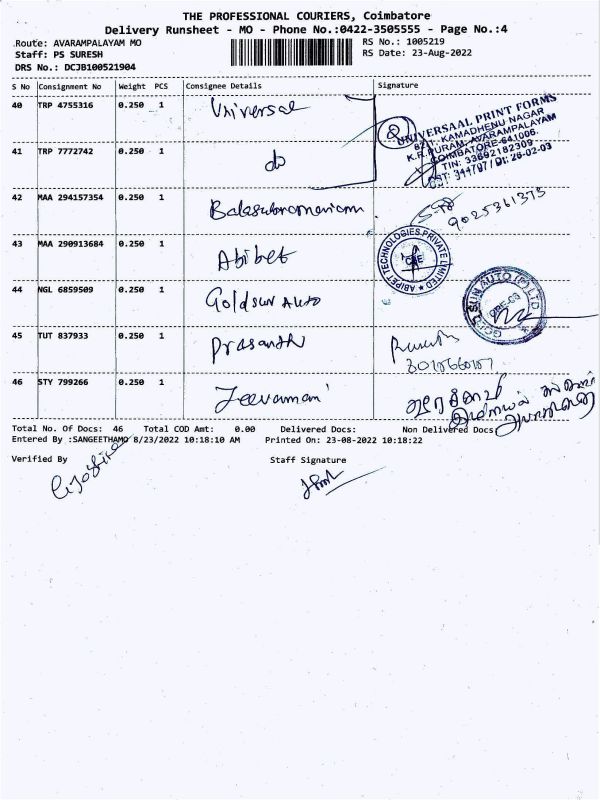 THE PROFESSIONAL COURIERS, Coimbatore
Delivery Runsheet - MO - Phone No.:0422-3505555 - Page No.:4
Route: AVARAMPALAYAM MO
RS No.: 1005219
Staff: PS SURESH
RS Date: 23-Aug-2022
DRS No.: DCJB100521904
S No Consignment No Weight PCS Consignee Details Signature
40 TRP 4755316 0.250 1 Universal
UNIVERSAAL PRINT FORMS
KAMADHENU NAGAR
K.R.PURAM, AVARAMPALAYAM
COIMBATORE-641006.
TIN: 33692182309
CST: 344797/Dt: 26-02-03
41 TRP 7772742 0.250 1 do
42 MAA 294157354 0.250 1 Balasubramaniam
9025361375
43 MAA 290913684 0.250 1 Abibet
ABIPET TECHNOLOGIES PRIVATE LIMITED
CBE
44 NGL 6859509 0.250 1 Goldsun Auto
SUN AUTO (P) LTD
CBE-
45 TUT 837933 0.250 1 Prasanth
46 STY 799266 0.250 1 Jeevamani
Total No. Of Docs: 46 Total COD Amt: 0.00 Delivered Docs: Non Delivered Docs:
Entered By :SANGEETHAMO 8/23/2022 10:18:10 AM Printed On: 23-08-2022 10:18:22
Verified By Staff Signature